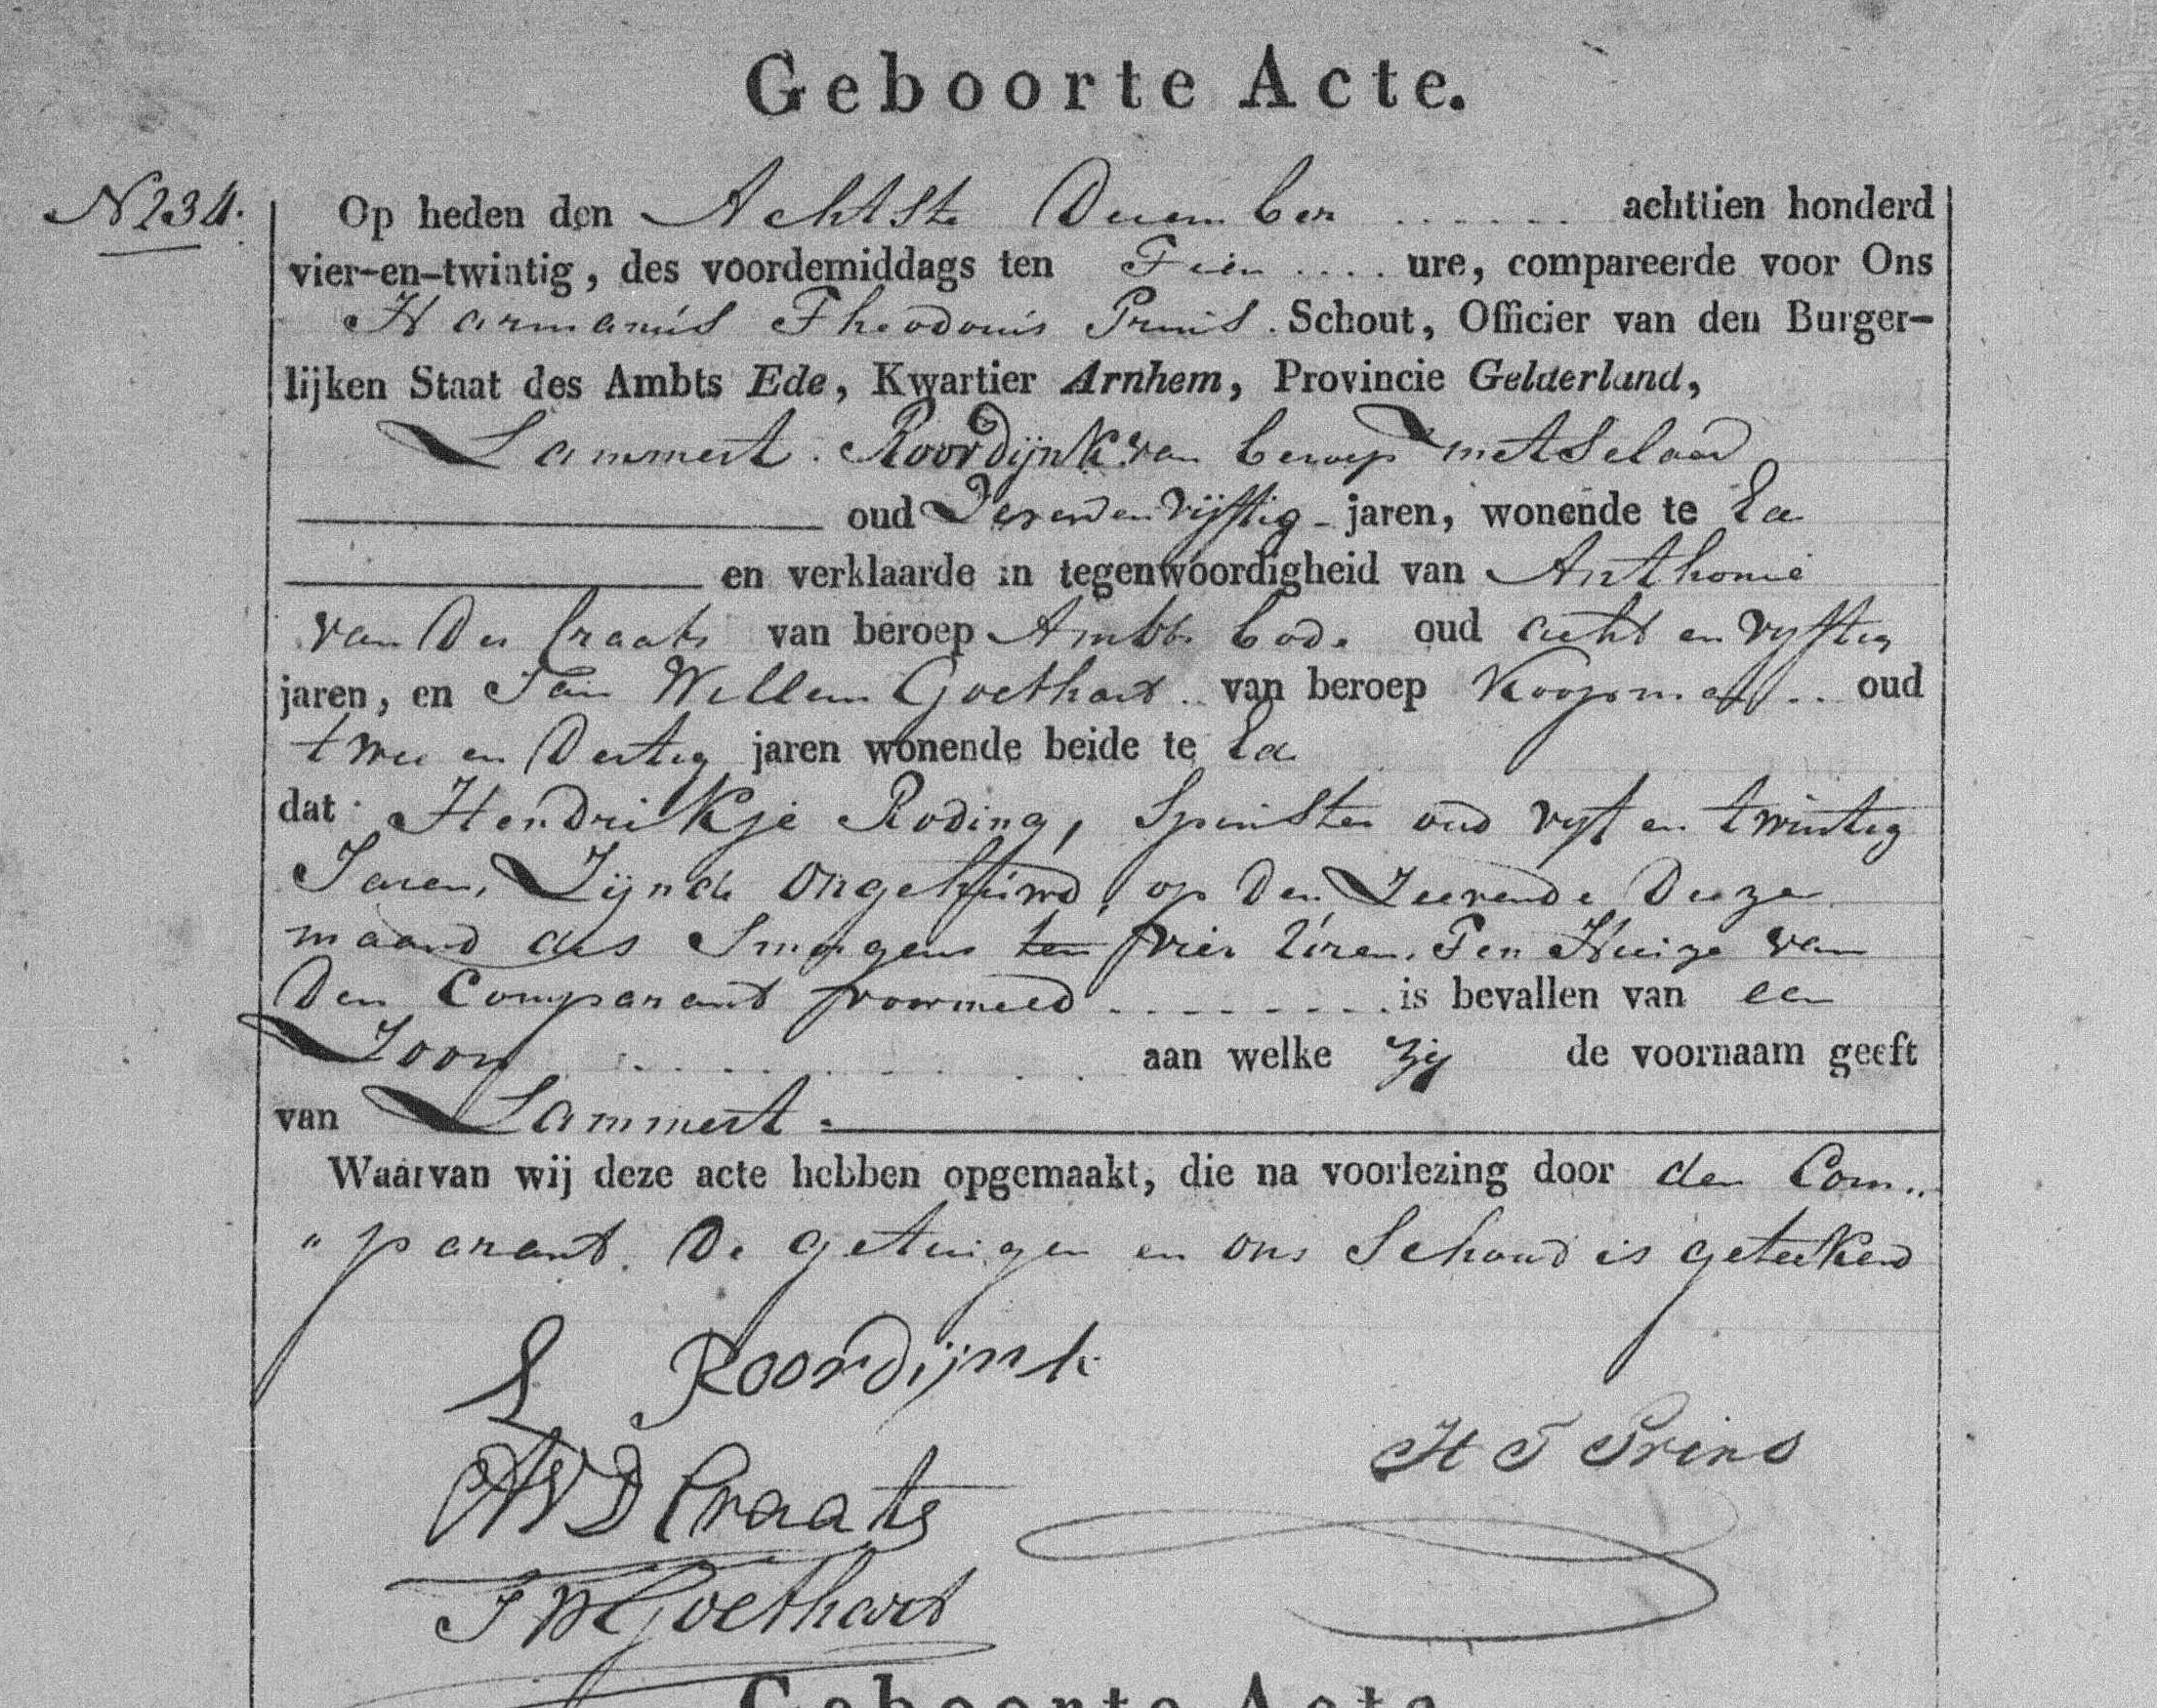 Geboorte Acte.
N 234.
Op heden den Achtste December achttien honderd
vier-en-twintig, des voordemiddags ten Tien .... ure, compareerde voor Ons
Harmanus Theodorus Prins. Schout, Officier van den Burger-
lijken Staat des Ambts Ede, Kwartier Arnhem, Provincie Gelderland,
Lammert Roordijnk van beroep metselaar
oud Zevenenvijftig jaren, wonende te Ede
en verklaarde in tegenwoordigheid van Anthonie
van der Craats van beroep Ambts bode oud acht en vyftig
jaren, en Jan Willem Goethart van beroep Koopman .. oud
twee en Dertig jaren wonende beide te Ede
dat Hendrikje Roding, Spinster oud vyf en twintig
Jaren, Zijnde ongehuwd, op den Zevende Deezer
maand des Smorgens ten vier Uren, Ten Huize van
Den Comparant voormeld is bevallen van een
Zoon aan welke zij de voornaam geeft
van Lammert
Waarvan wij deze acte hebben opgemaakt, die na voorlezing door den Com„
„parant. De getuigen en ons Schout is geteekend
L Roordijnk
H T Prins
AVD Craats
J W Goethart
Geboorte Acte